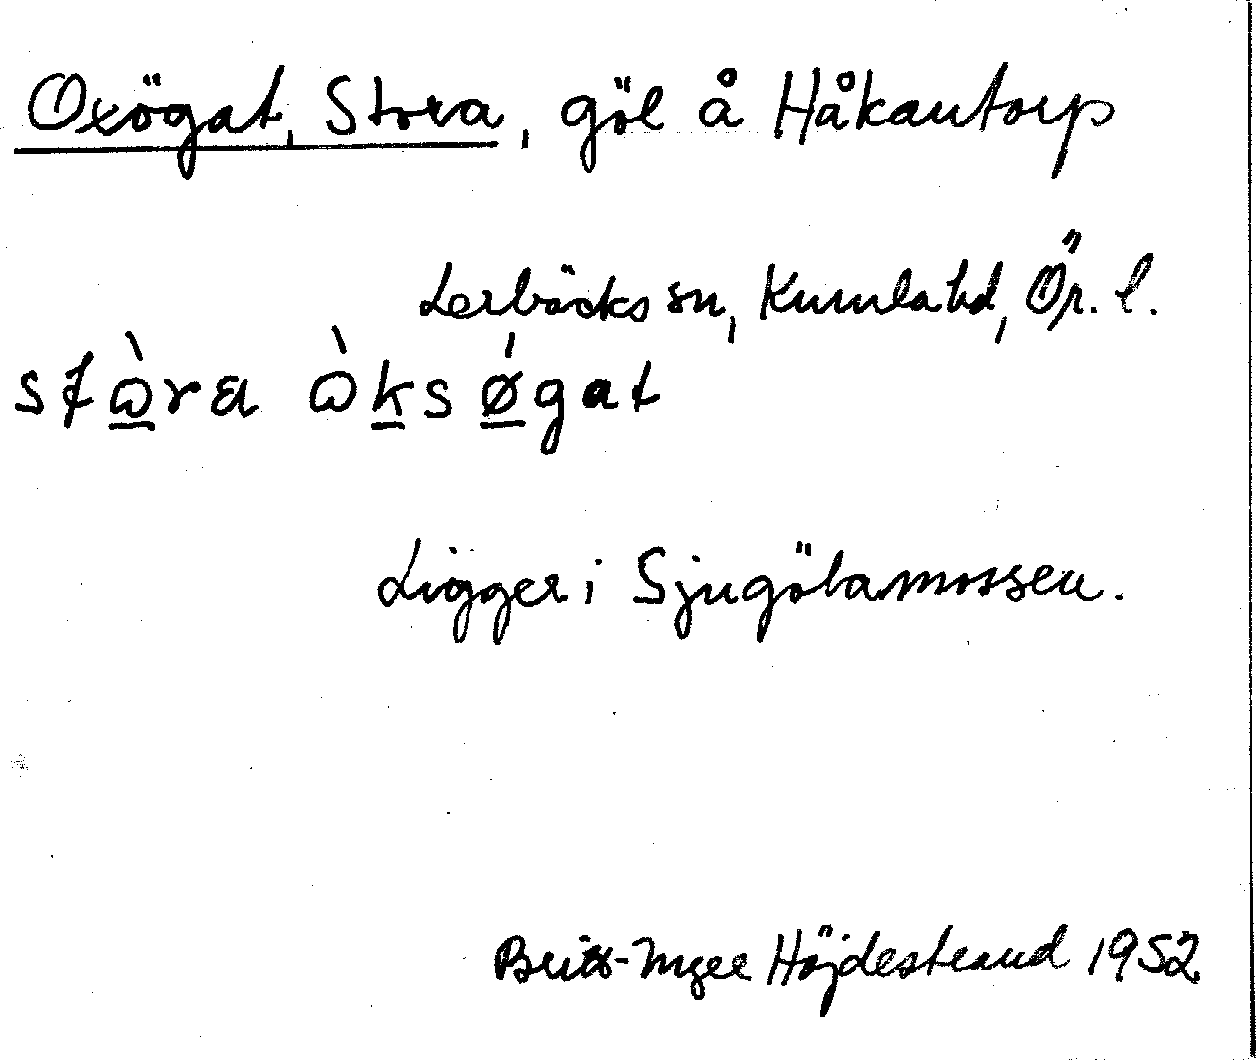 Oxögat, Stora, göl å Håkantorp
Lerbäcks sn, Kumla hd, Ör. l.
stɷ̀ra ɷ̀ksǿgat
Ligger i Sjugölamossen.
Britt-Inger Höjdestrand 1952